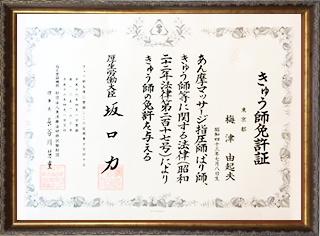 きゅう師免許証
東京都
梅津 由起夫
昭和四十三年七月八日生
あん摩マッサージ指圧師、はり師、
きゅう師等に関する法律(昭和
二十二年法律第二百十七号)により
きゅう師の免許を与える
厚生労働大臣 坂口力
理事長 長谷川